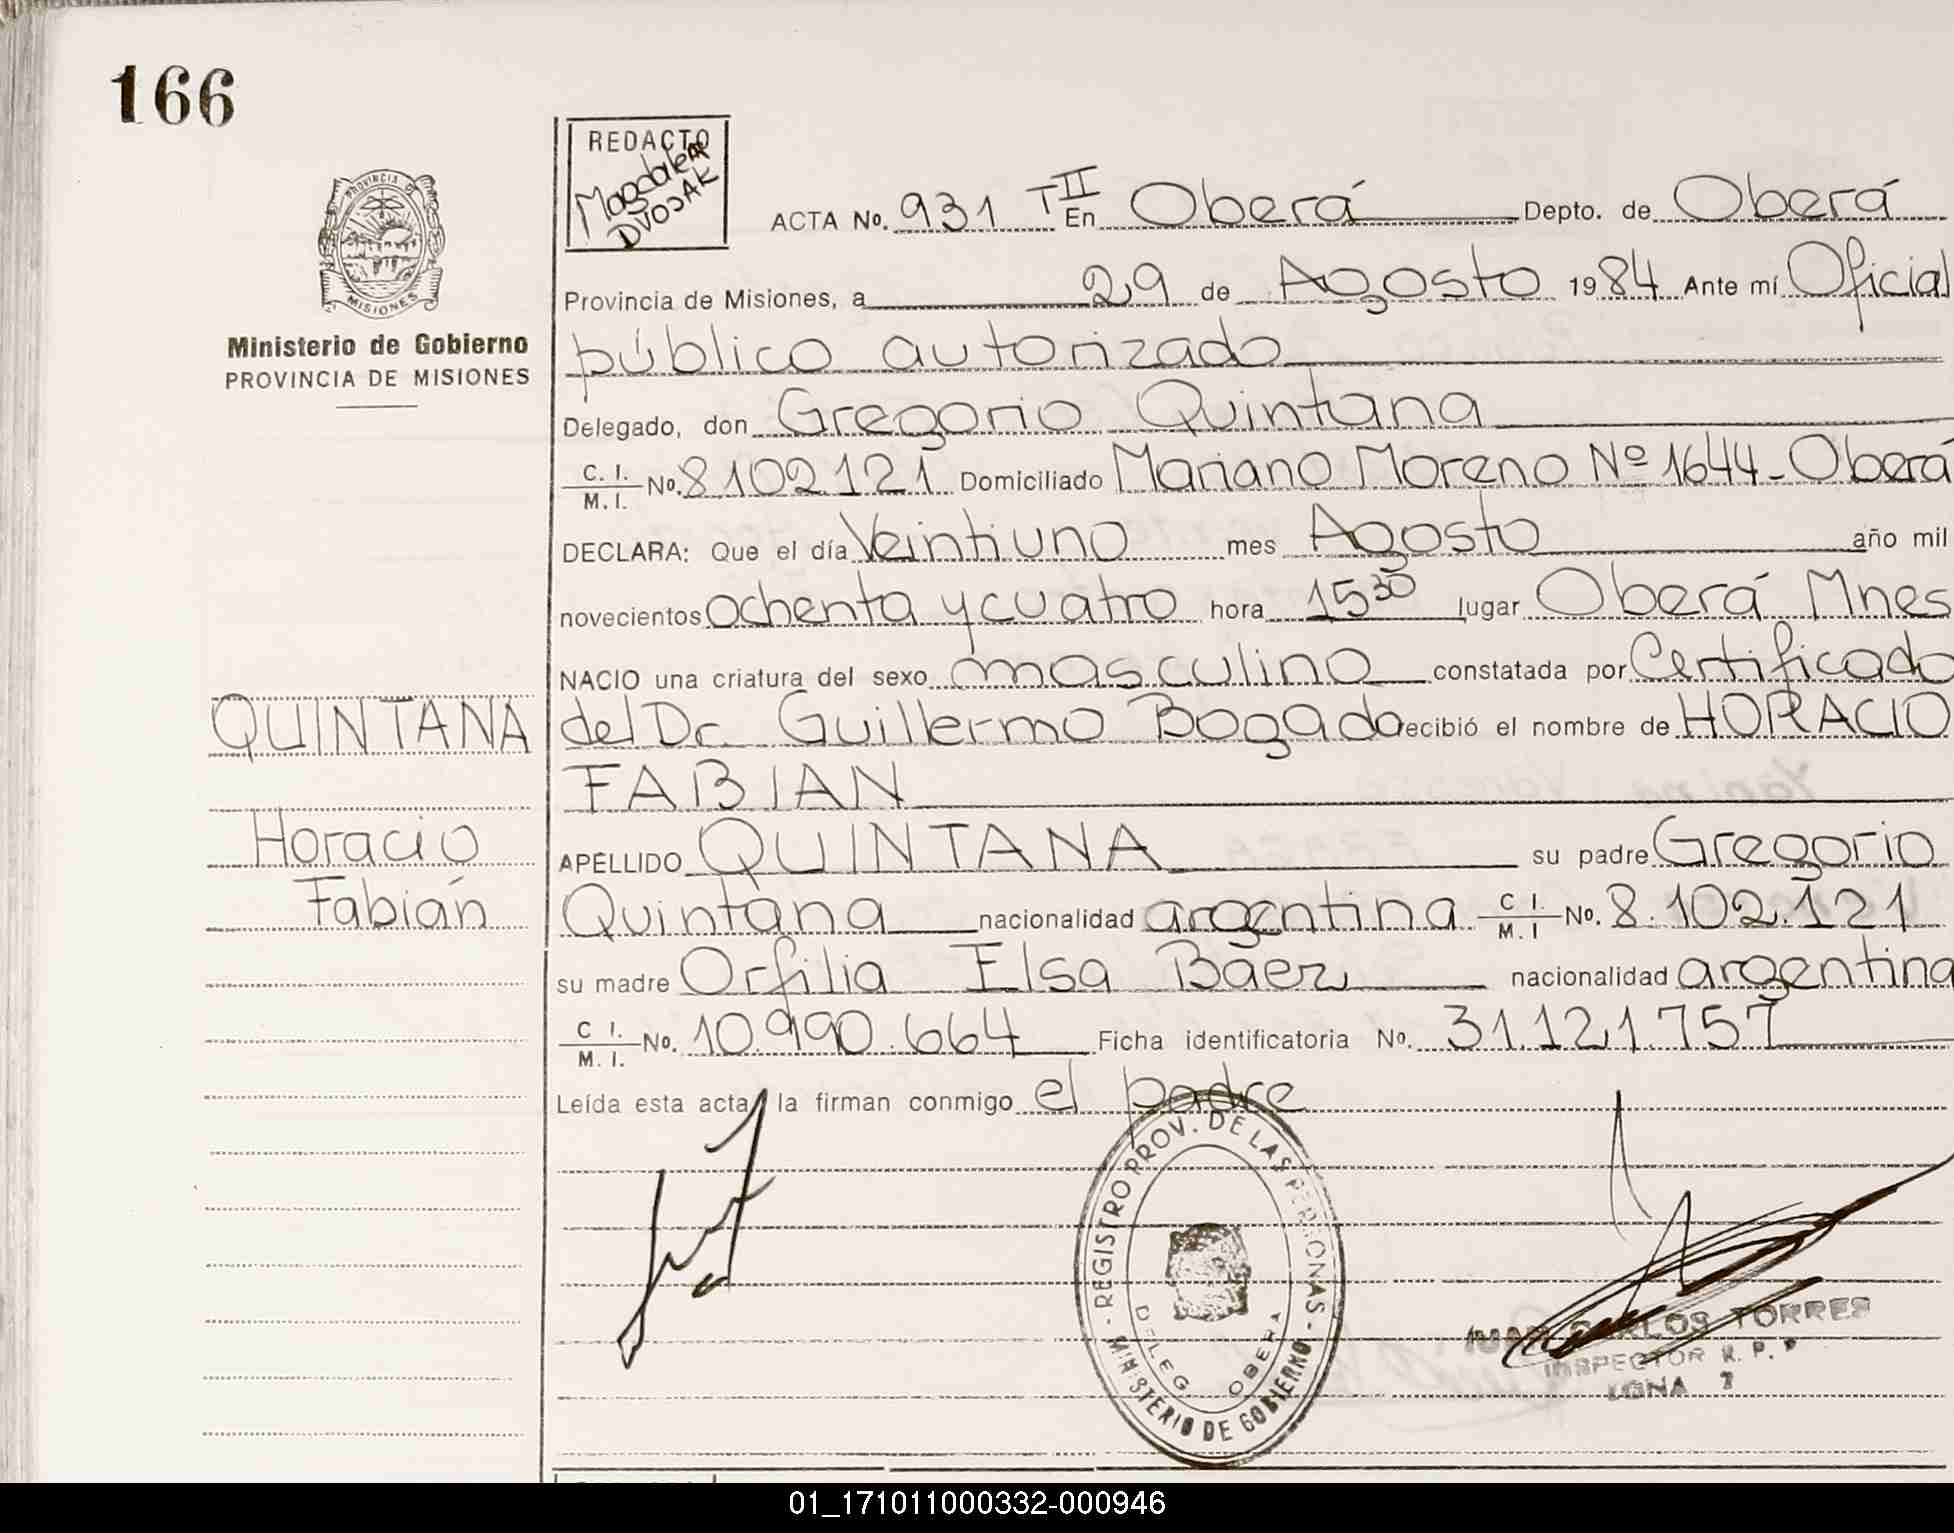 166
PROVINCIA DE
MISIONES
Ministerio de Gobierno
PROVINCIA DE MISIONES
REDACTO
Magdalena
DVOJAK
ACTA No. 931 TII En Oberá Depto. de Oberá
Provincia de Misiones, a 29 de Agosto 1984 Ante mí Oficial
público autorizado
Delegado, don Gregorio Quintana
C. I. / M. I. No. 8102121 Domiciliado Mariano Moreno Nº 1644 - Oberá
DECLARA: Que el día Veintiuno mes Agosto año mil
novecientos ochenta y cuatro hora 15 30 lugar Oberá Mnes
NACIO una criatura del sexo masculino constatada por Certificado
del Dr. Guillermo Bogado recibió el nombre de HORACIO
FABIAN
APELLIDO QUINTANA su padre Gregorio
Quintana nacionalidad argentina C I. / M. I No. 8.102.121
su madre Orfilia Elsa Báez nacionalidad argentina
C I. / M. I. No. 10.990.664 Ficha identificatoria No. 31.121.757
Leída esta acta, la firman conmigo el padre
QUINTANA
Horacio
Fabián
- REGISTRO PROV. DE LAS PERSONAS -
MINISTERIO DE GOBIERNO
DELEG OBERA
JUAN CARLOS TORRES
INSPECTOR R. P. P
ZONA 2
01_171011000332-000946